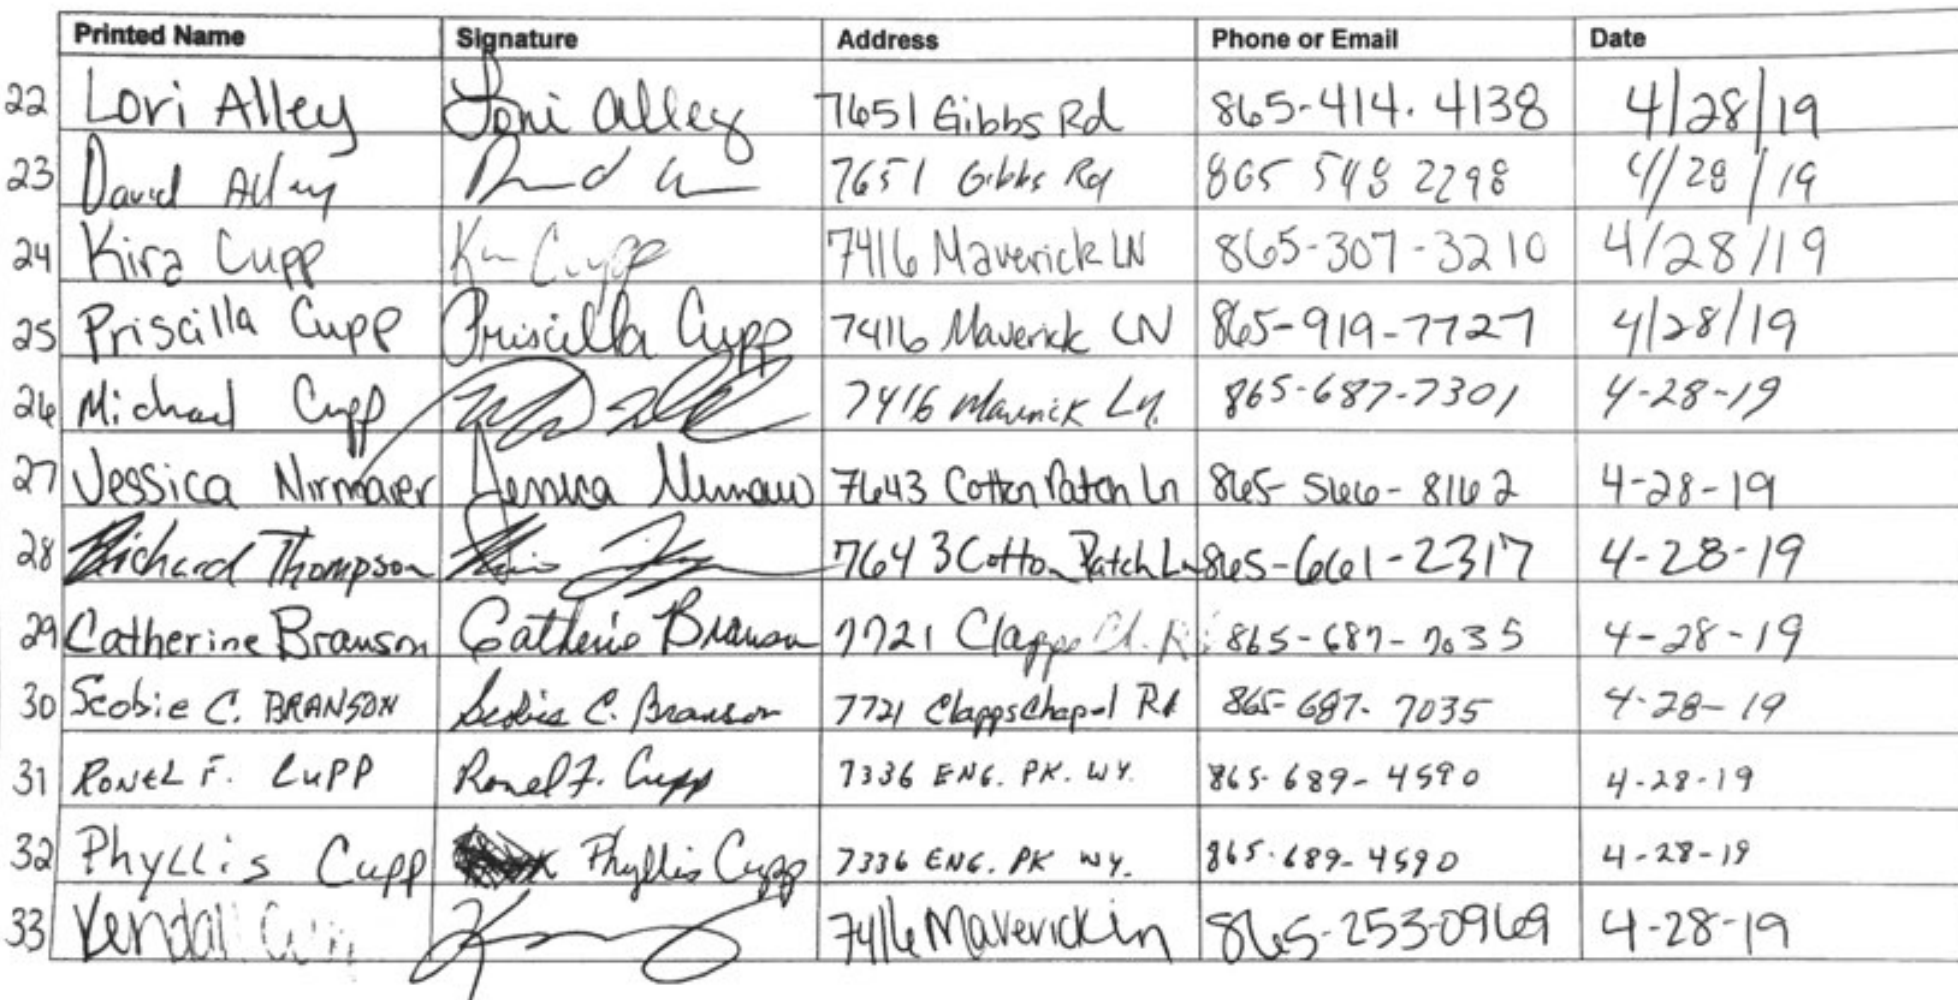 Printed Name Signature Address Phone or Email Date
22 Lori Alley Lori Alley 7651 Gibbs Rd 865-414.4138 4/28/19
23 David Alley 7651 Gibbs Rd 865 548 2298 4/28/19
24 Kira Cupp K Cupp 7416 Maverick LN 865-307-3210 4/28/19
25 Priscilla Cupp Priscilla Cupp 7416 Maverick LN 865-919-7727 4/28/19
26 Michael Cupp 7416 Maverick Ln. 865-687-7301 4-28-19
27 Jessica Nirmaier Jessica 7643 Cotton Patch Ln 865-566-8162 4-28-19
28 Richard Thompson 7643 Cotton Patch Ln 865-661-2317 4-28-19
29 Catherine Branson Catherine Branson 7721 Clapps Ch. R 865-687-7035 4-28-19
30 Scobie C. BRANSON Scobie C. Branson 7721 Clapps Chapel Rd 865-687-7035 4-28-19
31 RONEL F. CUPP Ronel F. Cupp 7336 ENG. PK. WY. 865-689-4590 4-28-19
32 Phyllis Cupp Phyllis Cupp 7336 ENG. PK WY. 865-689-4590 4-28-19
33 Kendall 7416 Maverick Ln 865-253-0969 4-28-19